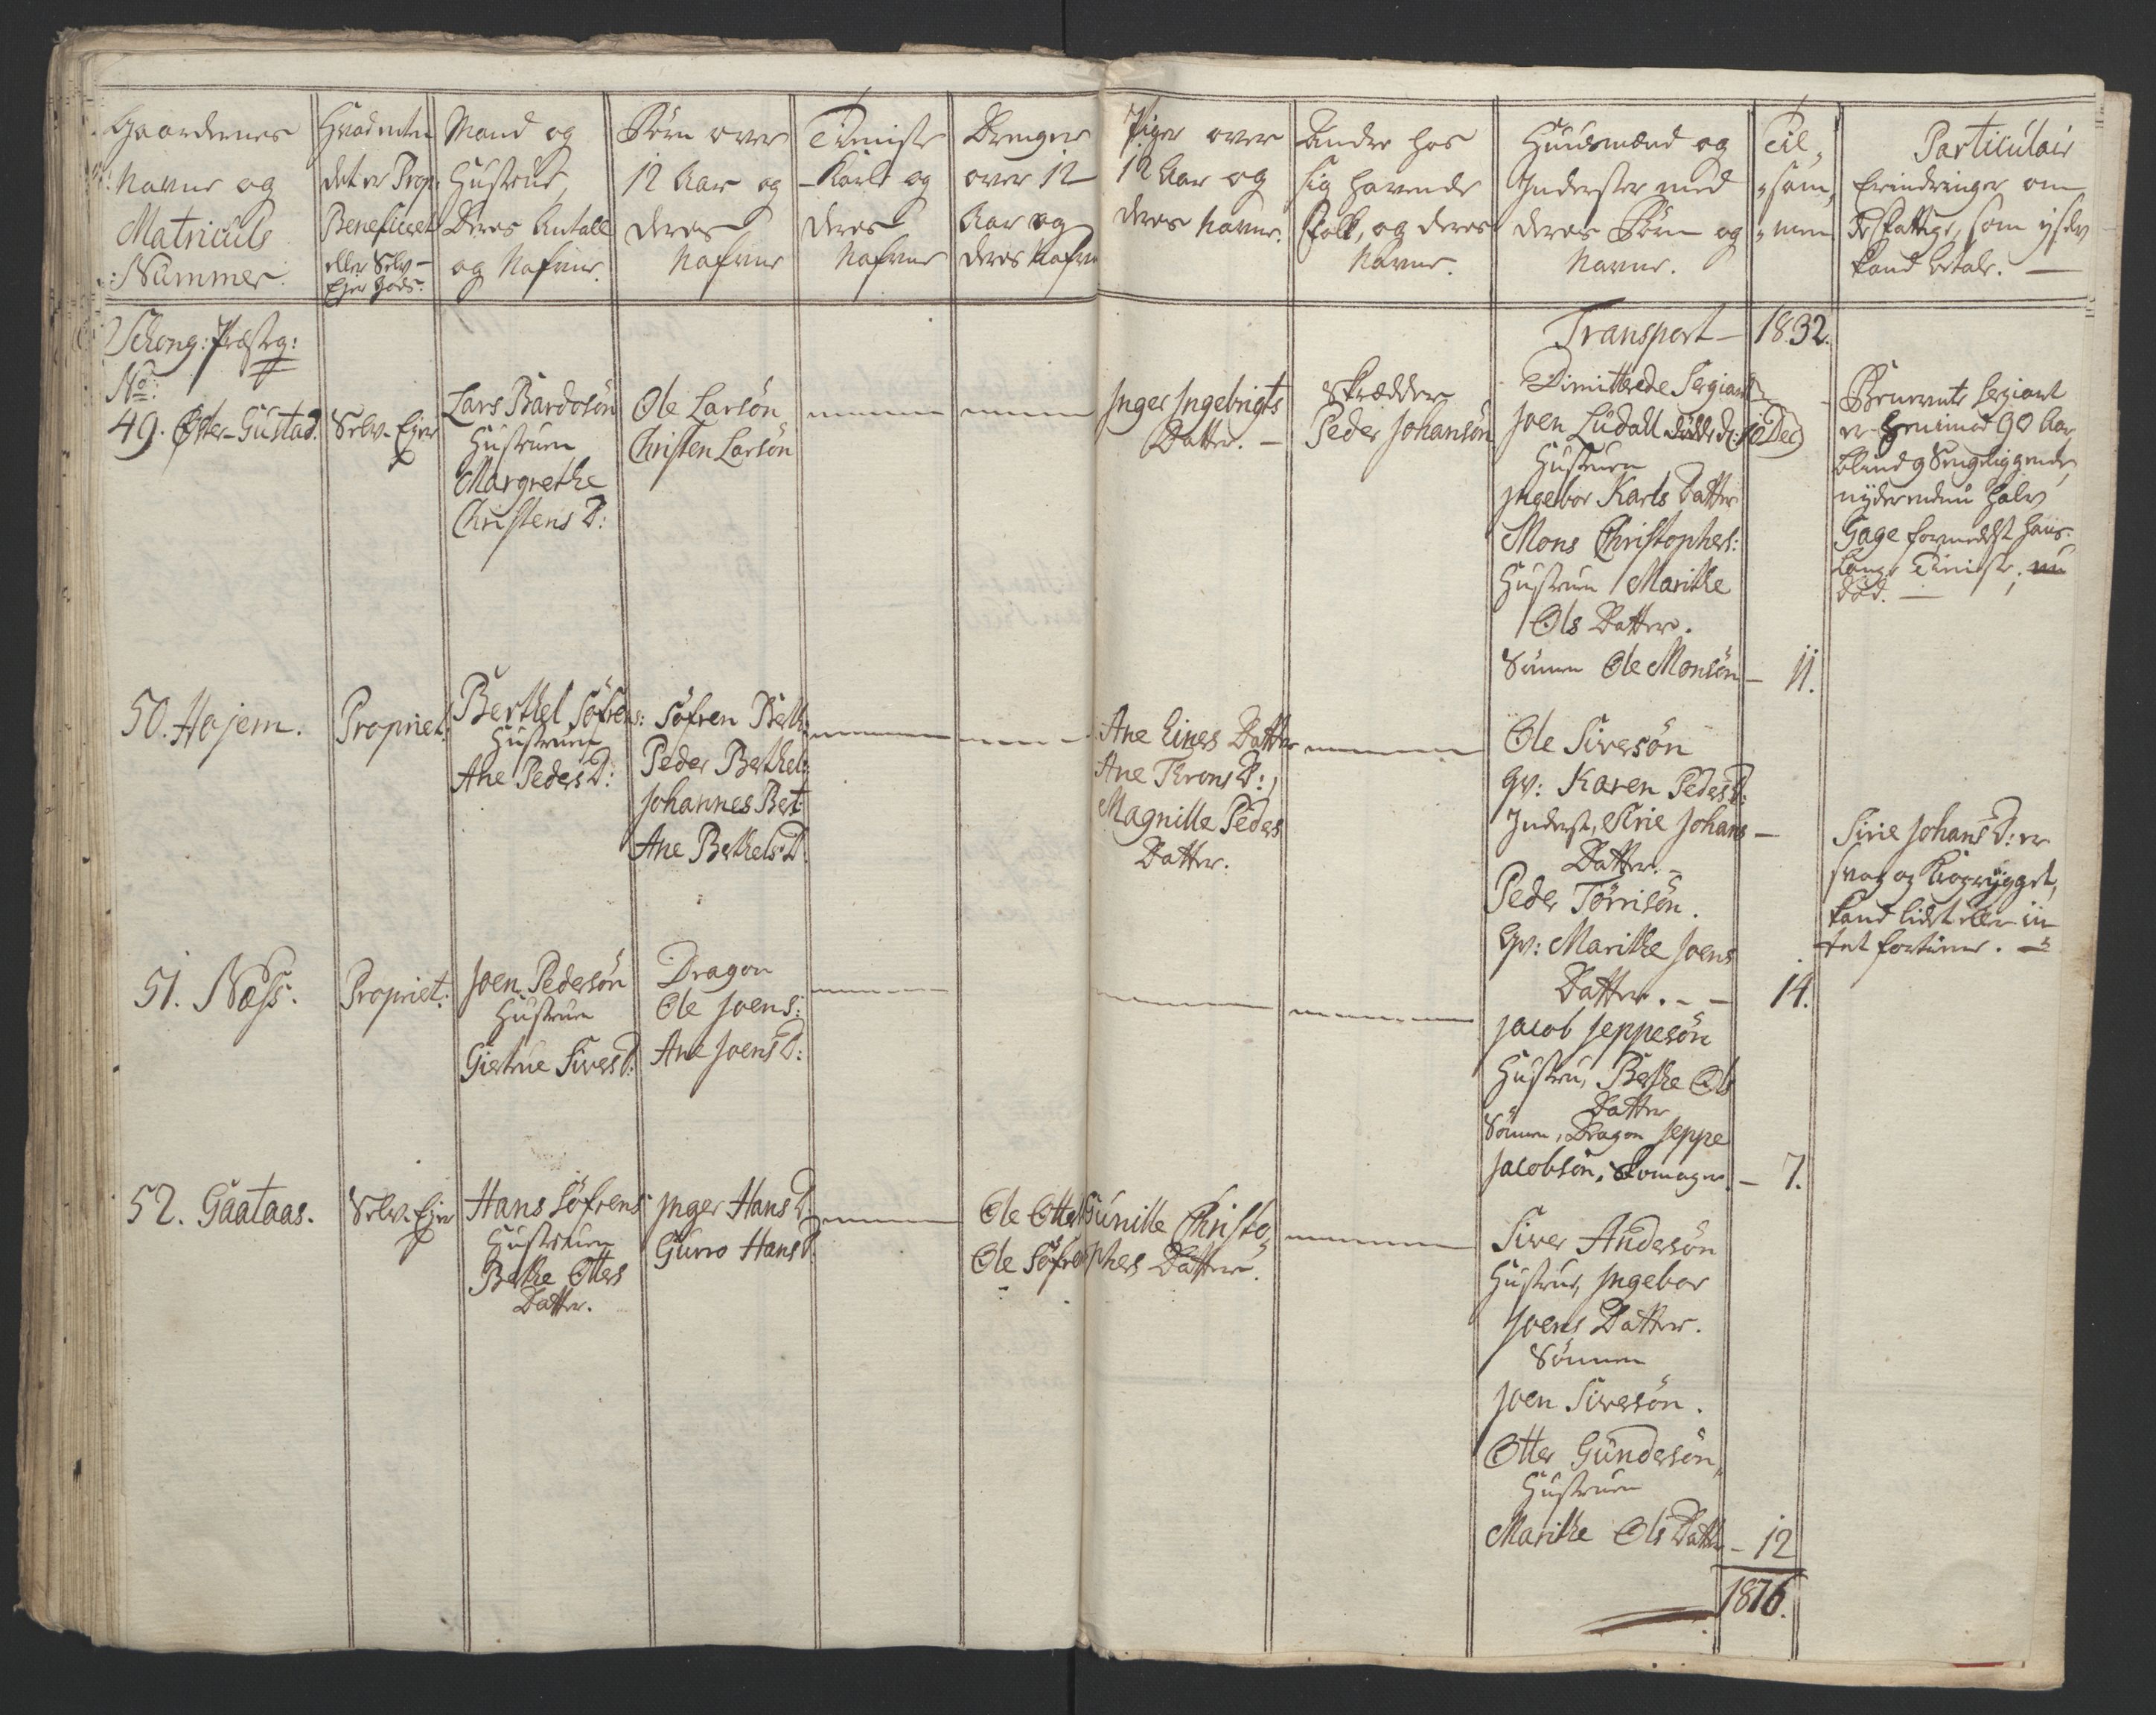 Gaardernes
Navne og
Matriculs
Nummer.
Hvad enten
det er Prop:
Beneficeret
eller Selv-
Ejer Gods.
Mand og
Hustrue,
Deres Antall
og Nafne.
Børn over
12 Aar og
deres
Nafne
Tieniste
Karle og
deres
Nafne
Drenger
over 12
Aar og
deres Nafne
Piger over
12 Aar og
deres Navne.
Andre hos
sig havende
Folk, og deres
Navne.
Huusmænd og
Inderster med
deres Børn og
Navne.
Til,
,sam,
,men
Particulair
Erindringer om
de fattige, som ej selv
kand betale. —
Schong: Præsteg:
Transport — 1832.
No:
49. Øster-Gustad.
Selv-Ejer
Lars Bardosøn
Hustruen
Margrethe
Christens D:
Ole Larsøn
Christen Larsøn
Inger Ingebrigts
Datter. —
Skrædder
Peder Johansøn
Dimitterede Sergiant
Joen Lüdall døde d: 10 Dec)
Hustruen
Ingebor Karls Datter
Mons Christophers:
Hustruen Marithe
Ols Datter.
Sønnen Ole Monsøn — 11.
Benevnte Sergiant
er henimod 90 Aar
blind og Sengeliggende,
nyder endnu halv
Gage formedelst hans
lange Tieniste, nu
død. —
50. Hojem.
Propriet:
Berthel Söfrens:
Hustruen
Ane Peders D:
Söfren Berth:
Peder Berthels:
Johannes Bert:
Ane Berthels D:
Ane Eines Datter
Ane Throns D:,
Magnille Peders
Datter.
Ole Siversøn
Qv: Karen Peders D:
Inderst, Sirie Johans —
Datter. —
Peder Törrisøn.
Qv: Marithe Joens
Datter. — — 14.
Sirie Johans D: er
svag og Krogrygget,
kand lidet eller in
tet fortiene. —
51. Næss.
Propriet:
Joen Pedersøn
Hustruen
Giertrue Sivers D:
Dragon
Ole Joens:
Ane Joens D:
Jacob Jeppesøn
Hustru, Berthe Ols
Datter
Sønnen, Dragon Jeppe
Jacobsøn, Skomager. — 7.
52. Gaataas.
Selv-Ejer
Hans Söfrens
Hustruen
Berthe Otters
Datter.
Inger Hans D:
Gurro Hans D:
Ole Otters
Ole Söfrens
Gunille Christo,
phers Datter.
Siver Andersøn
Hustrue, Ingebor
Joens Datter.
Sønnen
Joen Siversøn.
Otter Gundersøn,
Hustruen
Marithe Ols Datter — 12
1876.